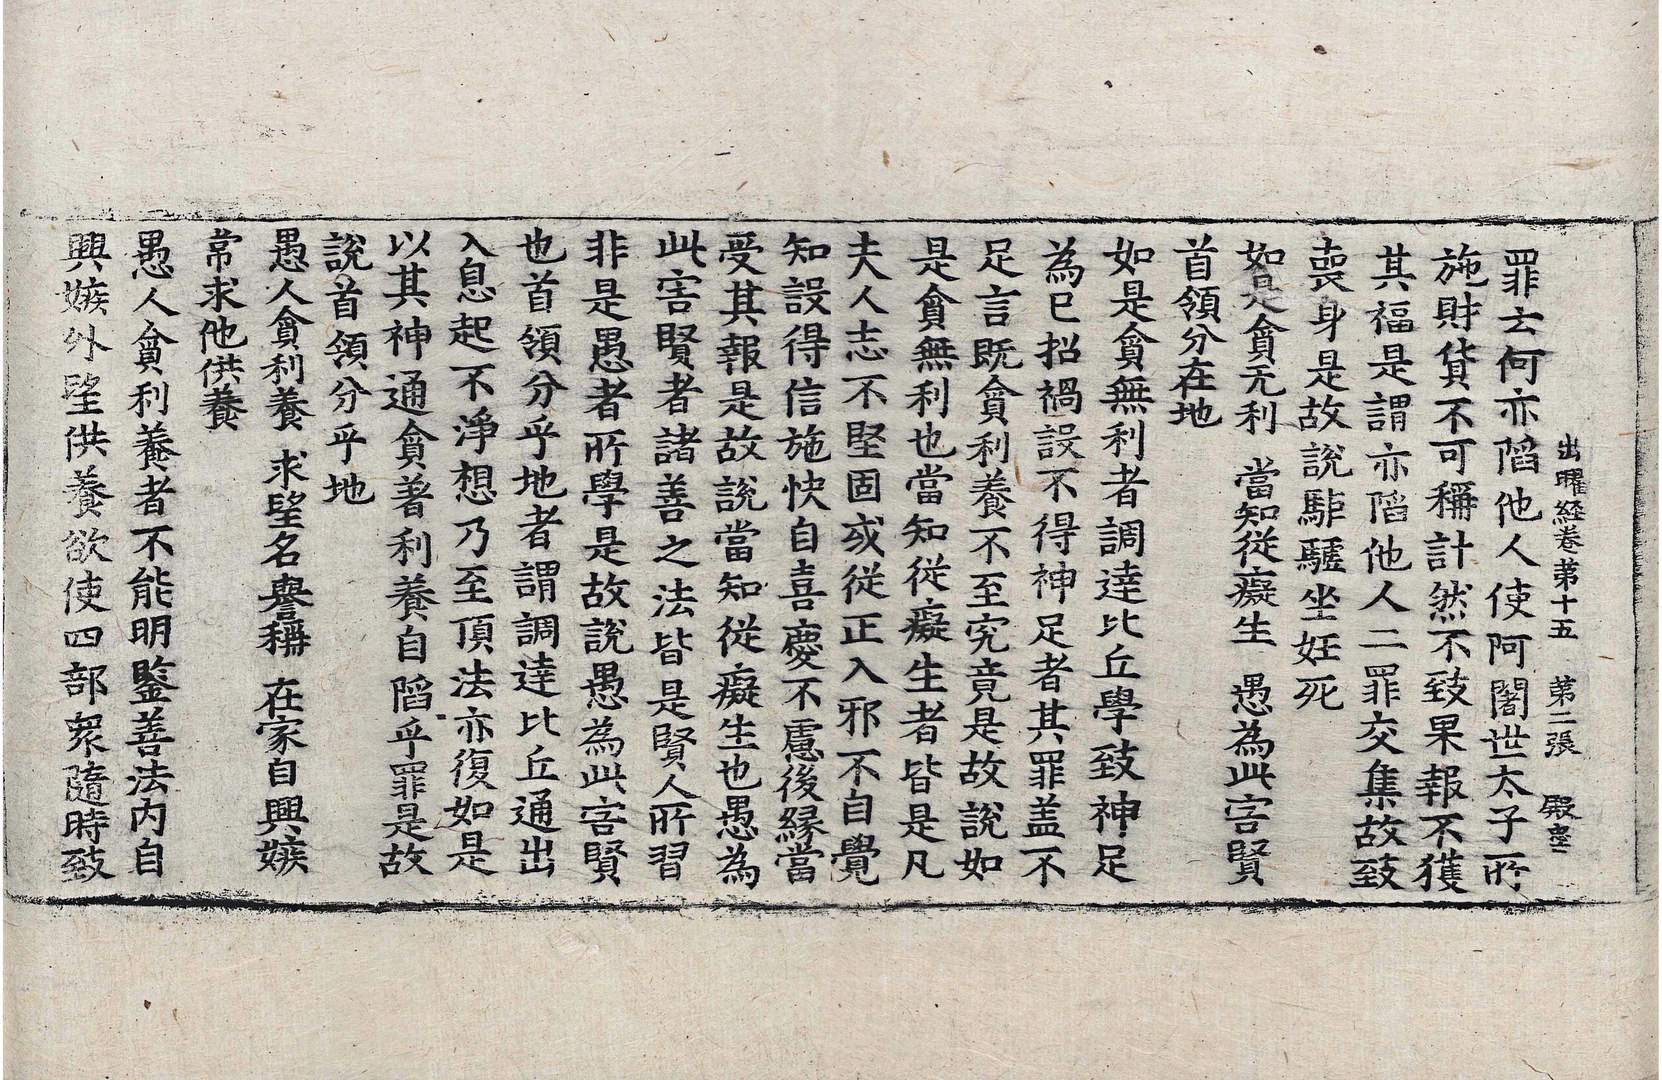 出曜経巻第十五 第二張 殿
罪云何亦陷他人使阿闍世太子所
施財貨不可稱計然不致果報不獲
其福是謂亦陷他人二罪交集故致
喪身是故說駏驉坐妊死
如是貪无利 當知從癡生 愚為此害賢
首領分在地
如是貪無利者調達比丘學致神足
為己招禍設不得神足者其罪盖不
足言既貪利養不至究竟是故說如
是貪無利也當知從癡生者皆是凡
夫人志不堅固或從正入邪不自覺
知設得信施快自喜慶不慮後緣當
受其報是故說當知從癡生也愚為
此害賢者諸善之法皆是賢人所習
非是愚者所學是故說愚為此害賢
也首領分乎地者謂調達比丘通出
入息起不淨想乃至頂法亦復如是
以其神通貪著利養自陷乎罪是故
說首領分乎地
愚人貪利養 求望名譽稱 在家自興嫉
常求他供養
愚人貪利養者不能明鑒善法内自
興嫉外望供養欲使四部衆隨時致